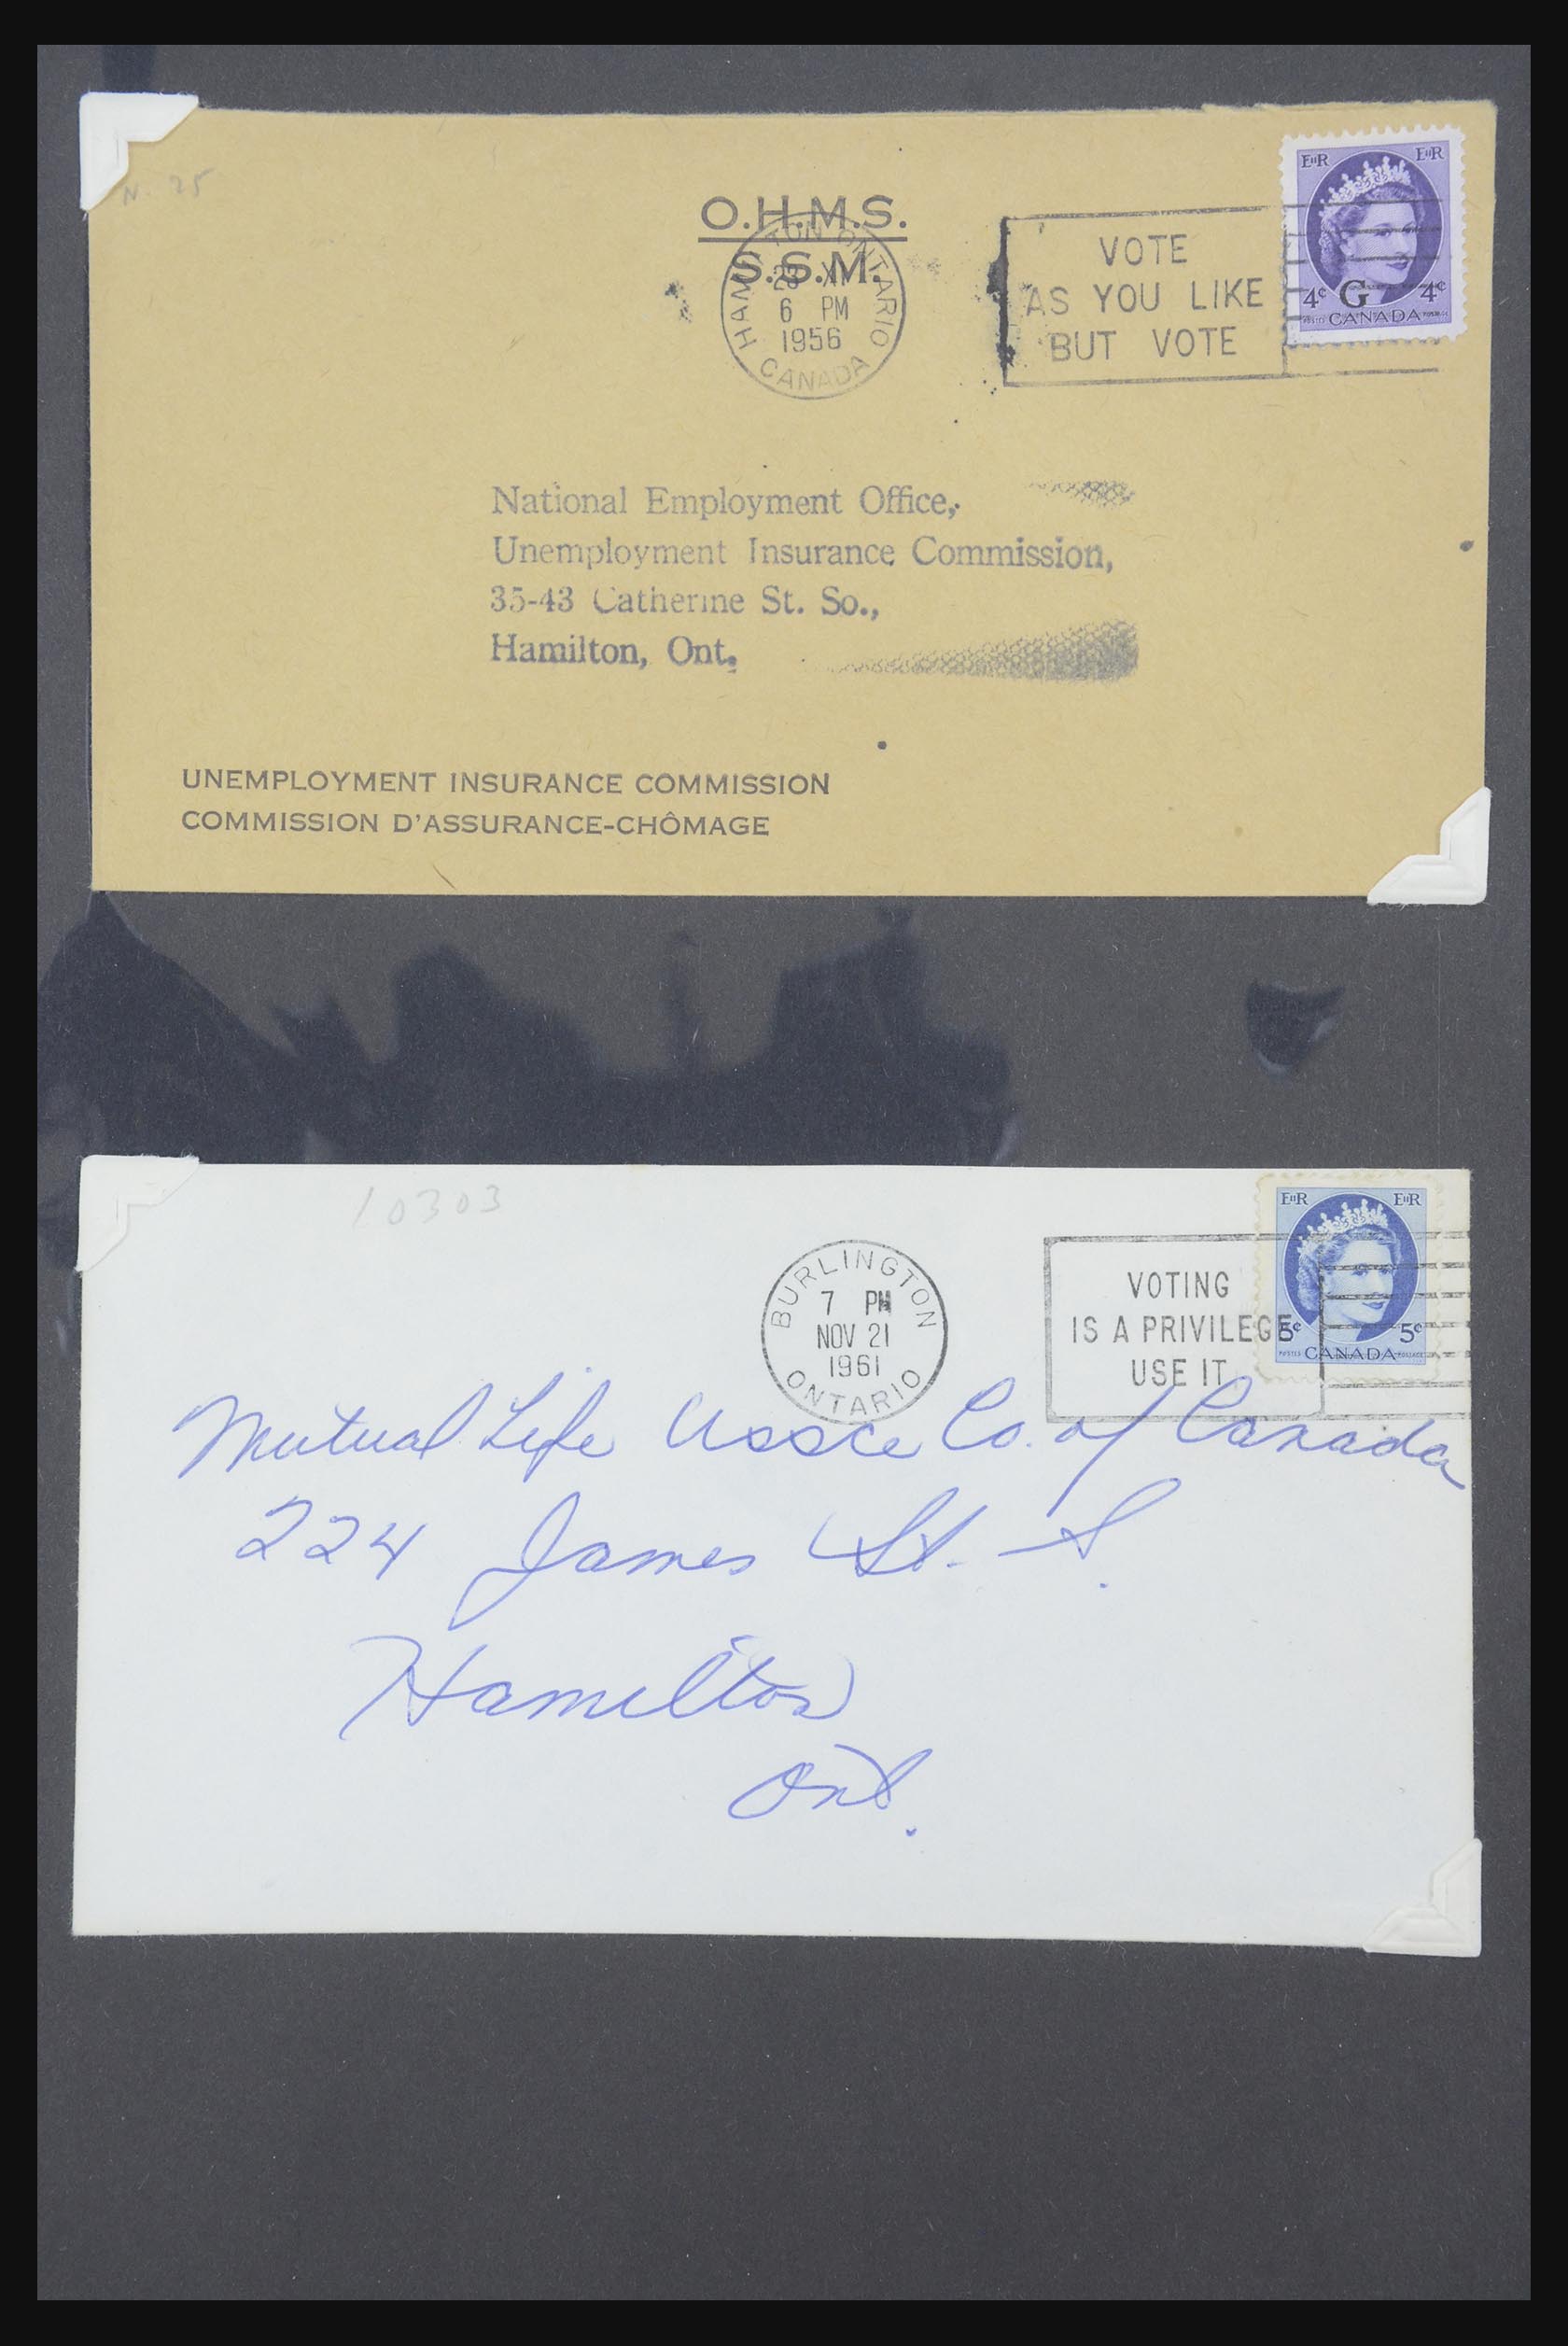 N. 25
O.H.M.S.
S.S.M.
HAMILTON ONTARIO
6 PM
1956
CANADA
VOTE
AS YOU LIKE
BUT VOTE
EIIR EIIR
4¢ G 4¢
POSTES CANADA POSTAGE
National Employment Office,
Unemployment Insurance Commission,
35-43 Catherine St. So.,
Hamilton, Ont.
UNEMPLOYMENT INSURANCE COMMISSION
COMMISSION D'ASSURANCE-CHÔMAGE
10303
BURLINGTON
7 PM
NOV 21
1961
ONTARIO
VOTING
IS A PRIVILEGE
USE IT
EIIR EIIR
5¢ 5¢
POSTES CANADA POSTAGE
Mutual Life Assce Co. of Canada
224 James St. S.
Hamilton
Ont.